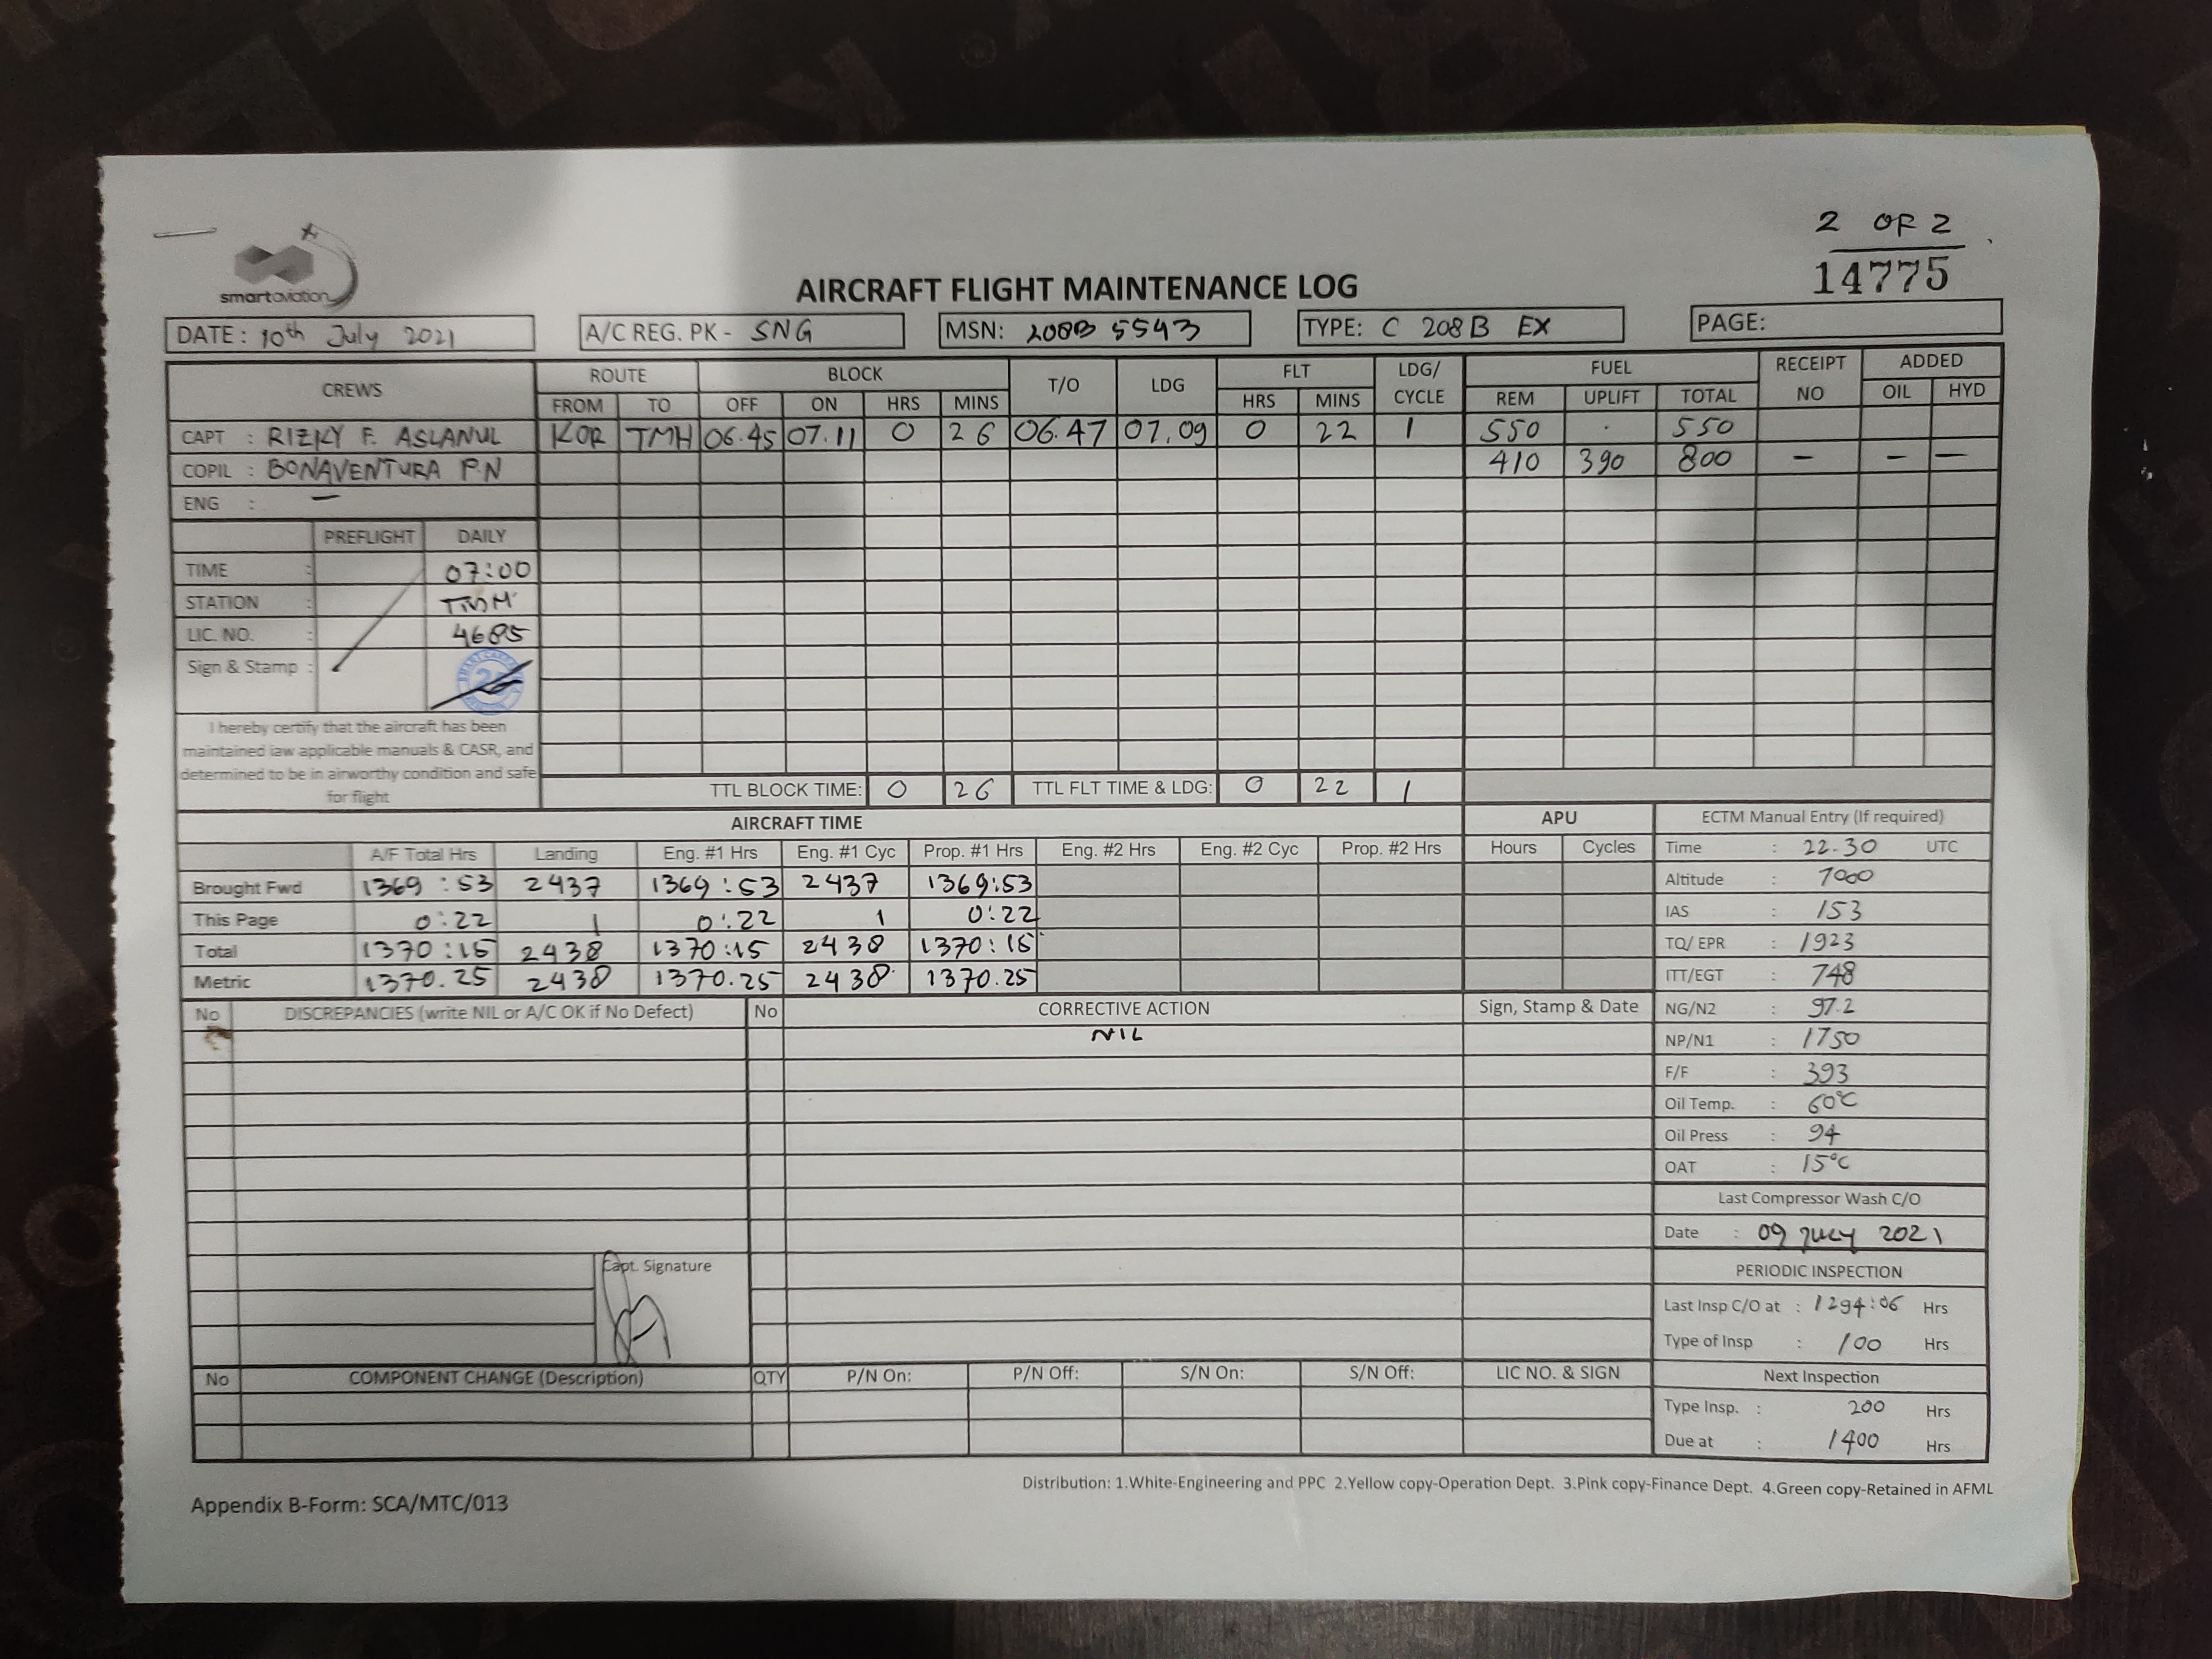 2 OF 2
14775
smartaviation
AIRCRAFT FLIGHT MAINTENANCE LOG
DATE : 10th July 2021 A/C REG. PK - SNG MSN: 208B 5543 TYPE: C 208B EX PAGE:
CREWS ROUTE BLOCK T/O LDG FLT LDG/ CYCLE FUEL RECEIPT NO ADDED
FROM TO OFF ON HRS MINS HRS MINS REM UPLIFT TOTAL OIL HYD
CAPT : RIZKY F. ASLANUL KOR TMH 06.45 07.11 0 26 06.47 07.09 0 22 1 550 . 550
COPIL : BONAVENTURA P.N 410 390 800 - - -
ENG : -
PREFLIGHT DAILY
TIME : 07:00
STATION :
LIC. NO. : 4685
Sign & Stamp :
I hereby certify that the aircraft has been
maintained iaw applicable manuals & CASR, and
determined to be in airworthy condition and safe
for flight
TTL BLOCK TIME: 0 26 TTL FLT TIME & LDG: 0 22 1
AIRCRAFT TIME APU ECTM Manual Entry (If required)
A/F Total Hrs Landing Eng. #1 Hrs Eng. #1 Cyc Prop. #1 Hrs Eng. #2 Hrs Eng. #2 Cyc Prop. #2 Hrs Hours Cycles Time : 22.30 UTC
Brought Fwd 1369 : 53 2437 1369 : 53 2437 1369:53 Altitude : 7000
This Page 0:22 1 0:22 1 0:22 IAS : 153
Total 1370 : 15 2438 1370:15 2438 1370:15 TQ/ EPR : 1923
Metric 1370.25 2438 1370.25 2438 1370.25 ITT/EGT : 748
No DISCREPANCIES (write NIL or A/C OK if No Defect) No CORRECTIVE ACTION Sign, Stamp & Date NG/N2 : 97.2
NIL NP/N1 : 1750
F/F : 393
Oil Temp. : 60°C
Oil Press : 94
OAT : 15°C
Last Compressor Wash C/O
Date : 09 July 2021
Capt. Signature PERIODIC INSPECTION
Last Insp C/O at : 1294:06 Hrs
Type of Insp : 100 Hrs
No COMPONENT CHANGE (Description) QTY P/N On: P/N Off: S/N On: S/N Off: LIC NO. & SIGN Next Inspection
Type Insp. : 200 Hrs
Due at : 1400 Hrs
Distribution: 1.White-Engineering and PPC 2.Yellow copy-Operation Dept. 3.Pink copy-Finance Dept. 4.Green copy-Retained in AFML
Appendix B-Form: SCA/MTC/013